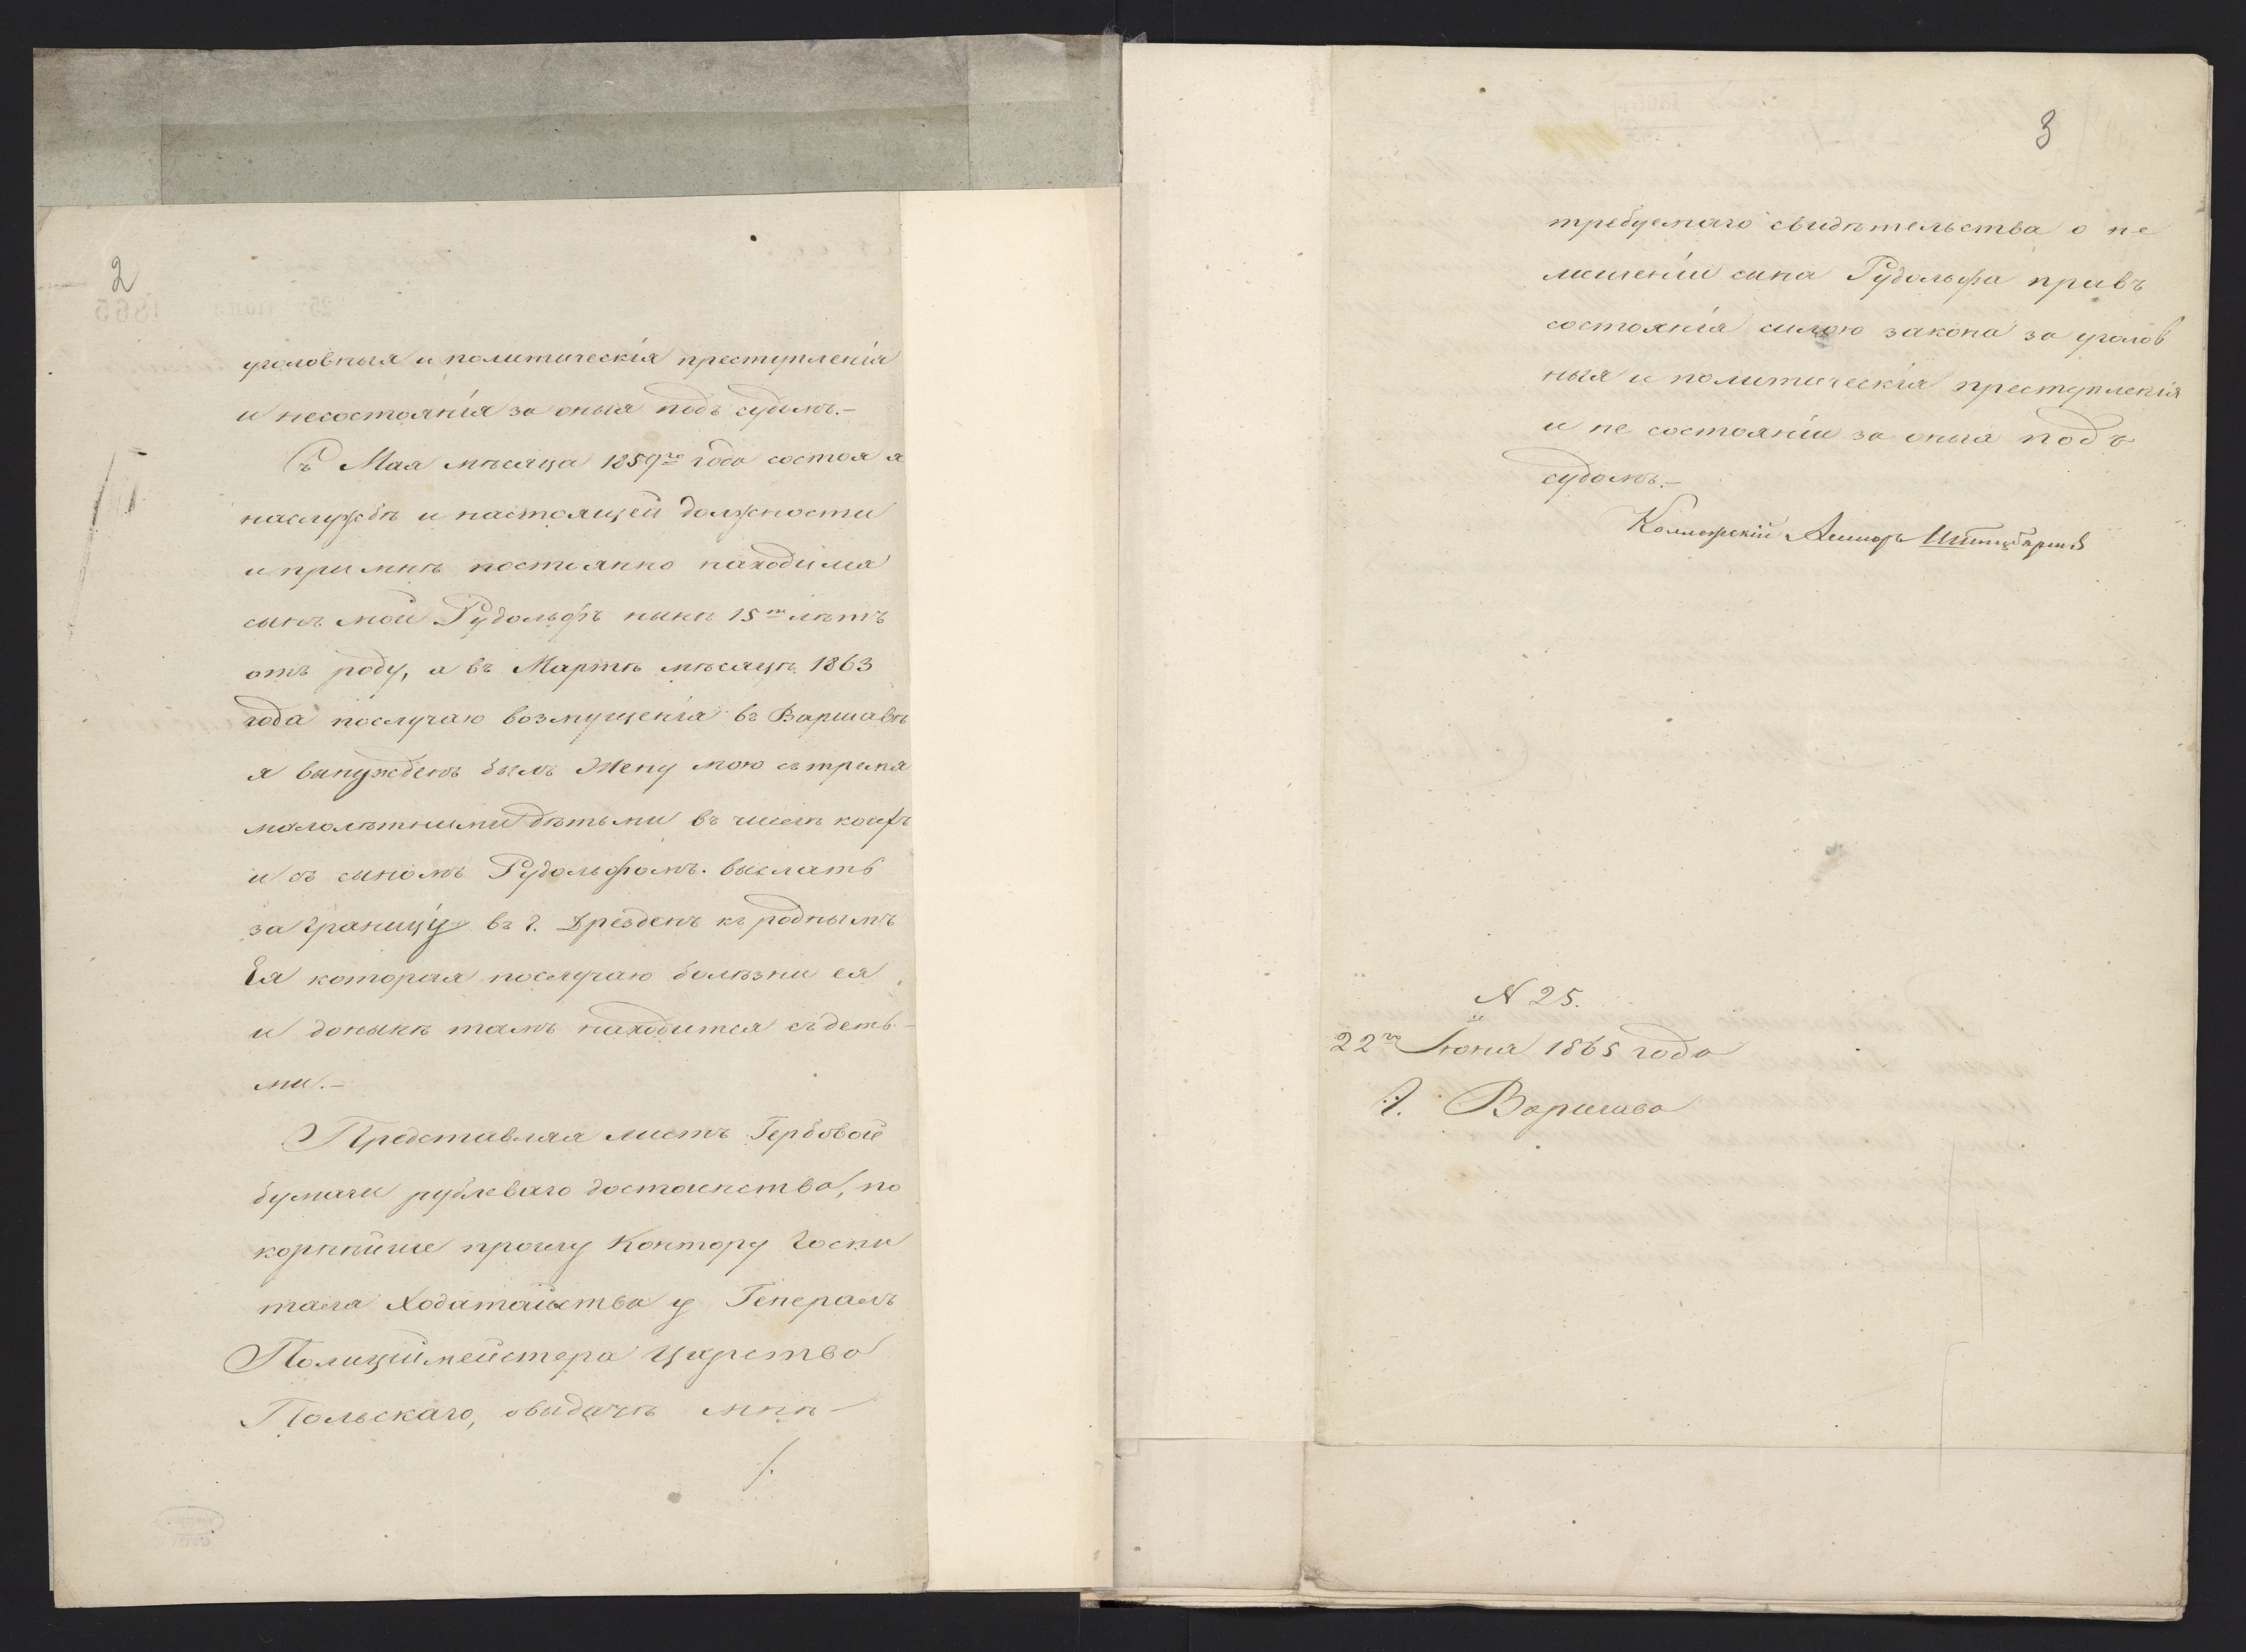 2
уголовныя и политическія преступленія
и несостоянія за оныя подъ судомъ.-
Съ Мая мѣсяца 1859го года состоя я
наслужбѣ и настоящей должности
и при мнѣ постоянно находился
сынъ мой Рудольфъ нынѣ 15ти лѣтъ
отъ роду, а въ Мартѣ мѣсяцѣ 1863
года послучаю возмущенія въ Варшавѣ
я вынужденъ былъ Жену мою съ тремя
малолѣтними дѣтьми въ числѣ коихъ
и съ сыномъ Рудольфомъ. выслать
за границу въ г. Дрезденъ къ роднымъ
Ея которая послучаю болѣзни ея
и донынѣ тамъ находится съ деть-
ми.-
Представляя листъ Гербовой
бумаги рублеваго достоинства, по
корнѣйше прошу Контору Госпи
таля Ходатайства у Генералъ
Полиціймейстера Царства
Польскаго, овыдачѣ мнѣ-
/.
3
требуемаго свидѣтельства о не
лишеніи сына Рудольфа правъ
состоянія силою закона за уголов
ныя и политическія преступленія
и не состояніи за оныя подъ
судомъ.-
Коллежскій
N 25.
22го Іюня 1865 года
г. Варшава